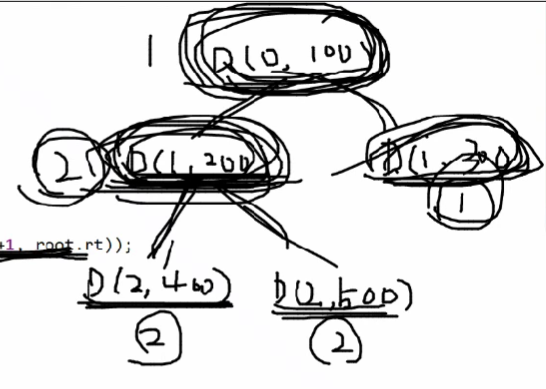 1 D(0, 100)
2 D(1, 200) D(1, 300)
1
+1, root.rt));
D(2, 400) D(2, 500)
2 2